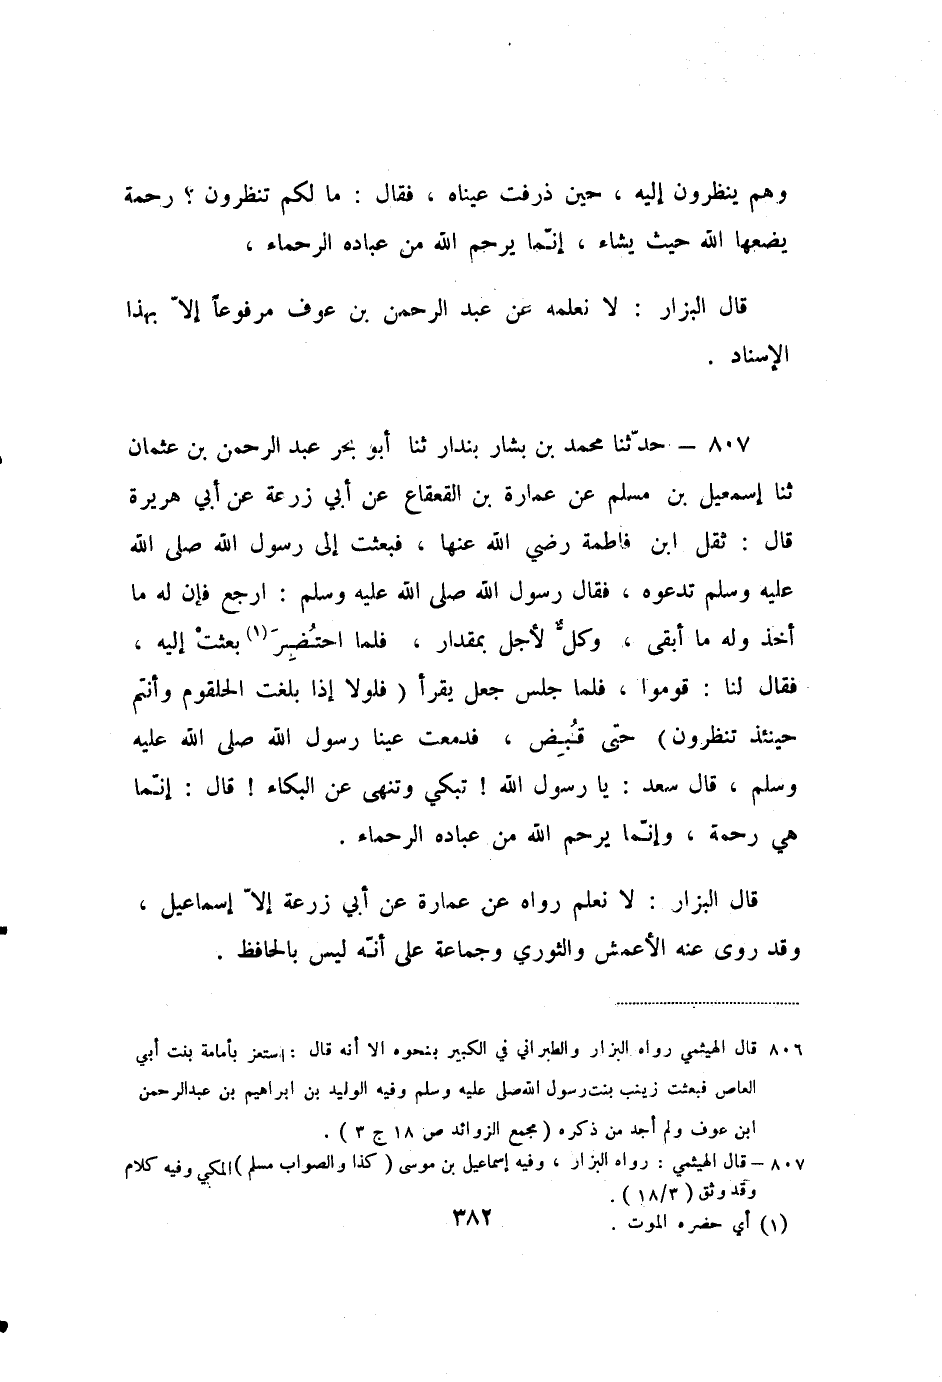 وهم ينظرون إليه ، حين ذرفت عيناه ، فقال : ما لكم تنظرون ؟ رحمة
يضعها الله حيث يشاء ، إنّما يرحم الله من عباده الرحماء ،
قال البزار : لا نعلمه عن عبد الرحمن بن عوف مرفوعاً إلاّ بهذا
الإسناد .
٨٠٧ – حدّثنا محمد بن بشار بندار ثنا أبو بحر عبد الرحمن بن عثمان
ثنا إسمعيل بن مسلم عن عمارة بن القعقاع عن أبي زرعة عن أبي هريرة
قال : ثقل ابن فاطمة رضي الله عنها ، فبعثت إلى رسول الله صلى الله
عليه وسلم تدعوه ، فقال رسول الله صلى الله عليه وسلم : ارجع فإن له ما
أخذ وله ما أبقى ، وكلٌّ لأجل بمقدار ، فلما احتُضِرَ(١) بعثتْ إليه ،
فقال لنا : قوموا ، فلما جلس جعل يقرأ ( فلولا إذا بلغت الحلقوم وأنتم
حينئذ تنظرون) حتى قُبِض ، فدمعت عينا رسول الله صلى الله عليه
وسلم ، قال سعد : يا رسول الله ! تبكي وتنهى عن البكاء ! قال : إنّما
هي رحمة ، وإنّما يرحم الله من عباده الرحماء .
قال البزار : لا نعلم رواه عن عمارة عن أبي زرعة إلاّ إسماعيل ،
وقد روى عنه الأعمش والثوري وجماعة على أنّه ليس بالحافظ .
٨٠٦ قال الهيثمي رواه البزار والطبراني في الكبير بنحوه الا أنه قال : استعز بأمامة بنت أبي
العاص فبعثت زينب بنت رسول الله صلى عليه وسلم وفيه الوليد بن ابراهيم بن عبدالرحمن
ابن عوف ولم أجد من ذكره ( مجمع الزوائد ص ١٨ ج ٣ ) .
٨٠٧ – قال الهيثمي : رواه البزار ، وفيه إسماعيل بن موسى ( كذا والصواب مسلم ) المكي وفيه كلام
وقد وثق ( ١٨/٣ ) .
(١) أي حضره الموت .
٣٨٢